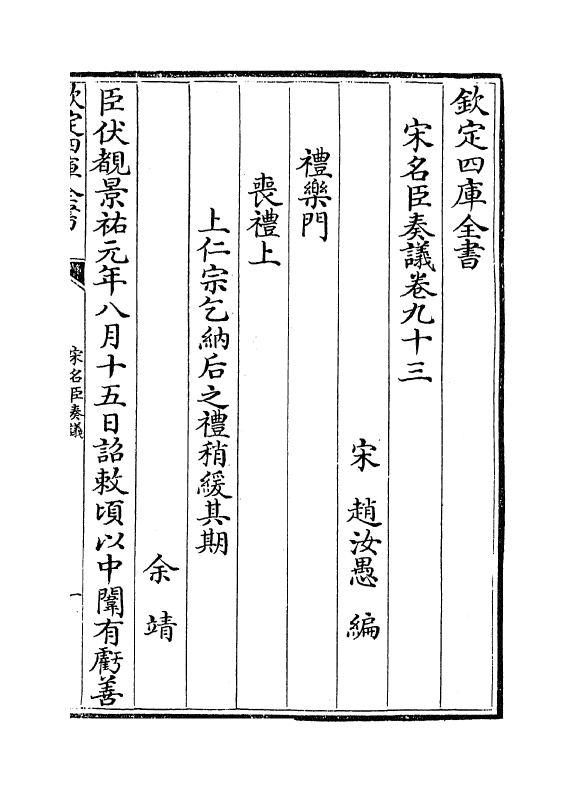 欽定四庫全書
宋名臣奏議卷九十三
宋 趙汝愚 編
禮樂門
喪禮上
上仁宗乞納后之禮稍緩其期
余靖
臣伏覩景祐元年八月十五日詔敕頃以中闈有虧善
欽定四庫全書
宋名臣奏議
一